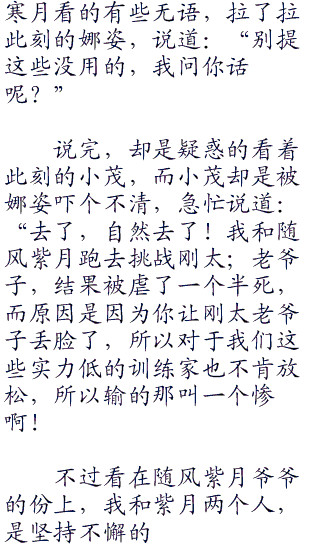 寒月看的有些无语，拉了拉
此刻的娜姿，说道：“别提
这些没用的，我问你话
呢？”
说完，却是疑惑的看着
此刻的小茂，而小茂却是被
娜姿吓个不清，急忙说道：
“去了，自然去了！我和随
风紫月跑去挑战刚太；老爷
子，结果被虐了一个半死，
而原因是因为你让刚太老爷
子丢脸了，所以对于我们这
些实力低的训练家也不肯放
松，所以输的那叫一个惨
啊！
不过看在随风紫月爷爷
的份上，我和紫月两个人，
是坚持不懈的